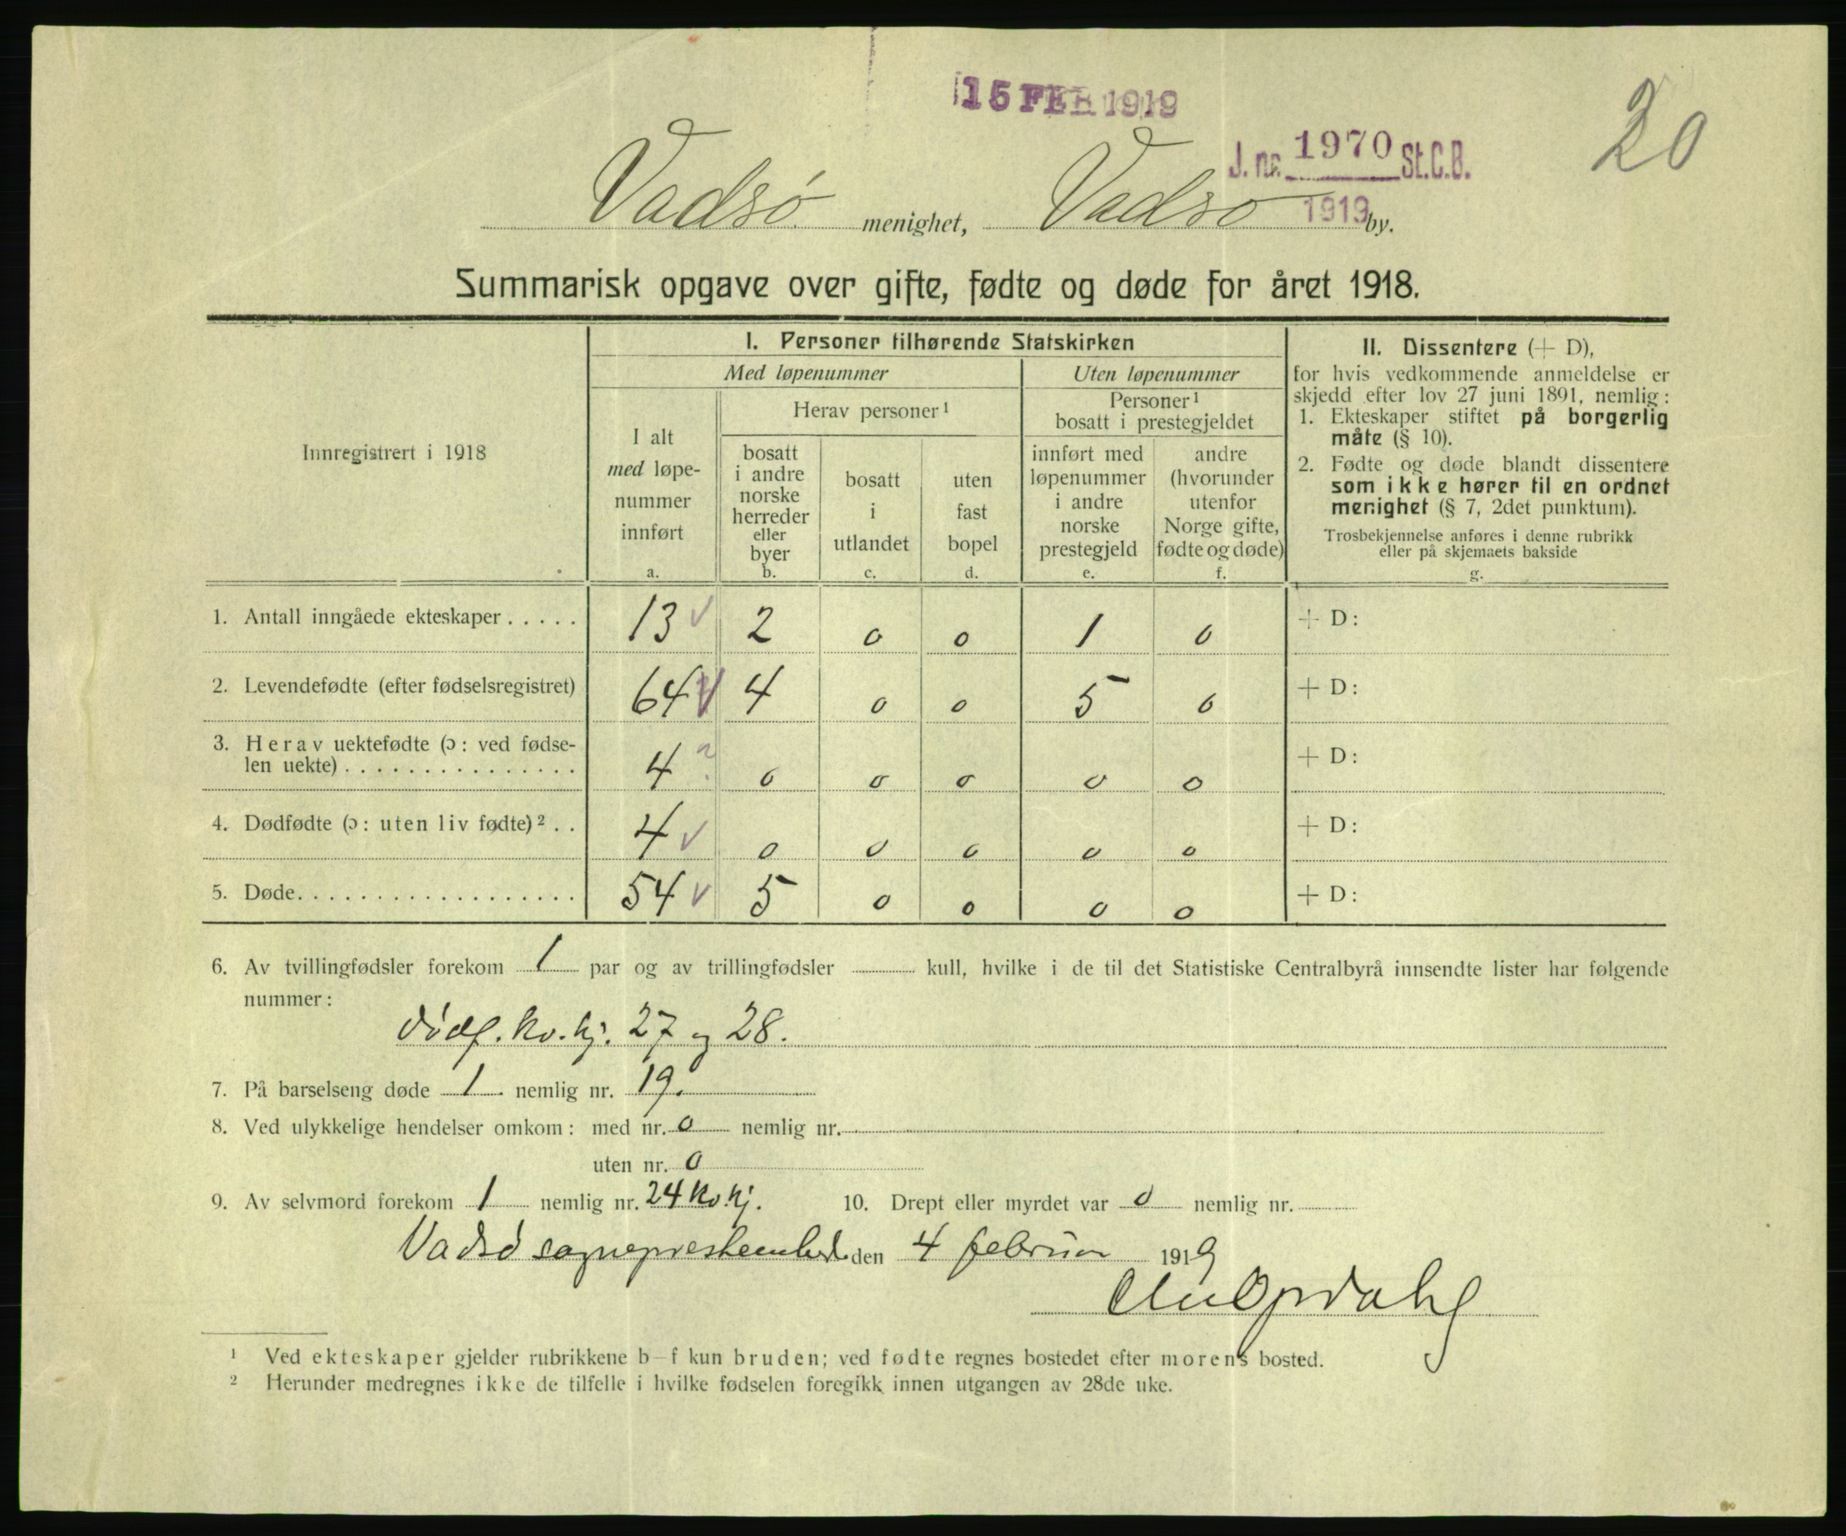 15 FEB 1919
20
J. nr. 1970 St.C.B.
1919
Vadsø menighet, Vadsø by.
Summarisk opgave over gifte, fødte og døde for året 1918.
Innregistrert i 1918
I. Personer tilhørende Statskirken
Med løpenummer
Uten løpenummer
I alt
med løpe-
nummer
innført
a.
Herav personer¹
bosatt
i andre
norske
herreder
eller
byer
b.
bosatt
i
utlandet
c.
uten
fast
bopel
d.
Personer¹
bosatt i prestegjeldet
innført med
løpenummer
i andre
norske
prestegjeld
e.
andre
(hvorunder
utenfor
Norge gifte,
fødte og døde)
f.
II. Dissentere (+ D),
for hvis vedkommende anmeldelse er
skjedd efter lov 27 juni 1891, nemlig:
1. Ekteskaper stiftet på borgerlig
måte (§ 10).
2. Fødte og døde blandt dissentere
som ikke hører til en ordnet
menighet (§ 7, 2det punktum).
Trosbekjennelse anføres i denne rubrikk
eller på skjemaets bakside
g.
1. Antall inngåede ekteskaper ..... 13 2 0 0 1 0 + D:
2. Levendefødte (efter fødselsregistret) 64 4 0 0 5 0 + D:
3. Herav uektefødte (ɔ: ved fødse-
len uekte) ............... 4 ? 0 0 0 0 0 + D:
4. Dødfødte (ɔ: uten liv fødte)² .. 4 0 0 0 0 0 + D:
5. Døde.................. 54 5 0 0 0 0 + D:
6. Av tvillingfødsler forekom 1 par og av trillingfødsler kull, hvilke i de til det Statistiske Centralbyrå innsendte lister har følgende
nummer:
dødf. kv. kj. 27 og 28.
7. På barselseng døde 1 nemlig nr. 19.
8. Ved ulykkelige hendelser omkom: med nr. 0 nemlig nr.
uten nr. 0
9. Av selvmord forekom 1 nemlig nr. 24 kv. kj. 10. Drept eller myrdet var 0 nemlig nr.
Vadsø sogneprestembede den 4 februar 1919
Opdahl
¹ Ved ekteskaper gjelder rubrikkene b–f kun bruden; ved fødte regnes bostedet efter morens bosted.
² Herunder medregnes ikke de tilfelle i hvilke fødselen foregikk innen utgangen av 28de uke.